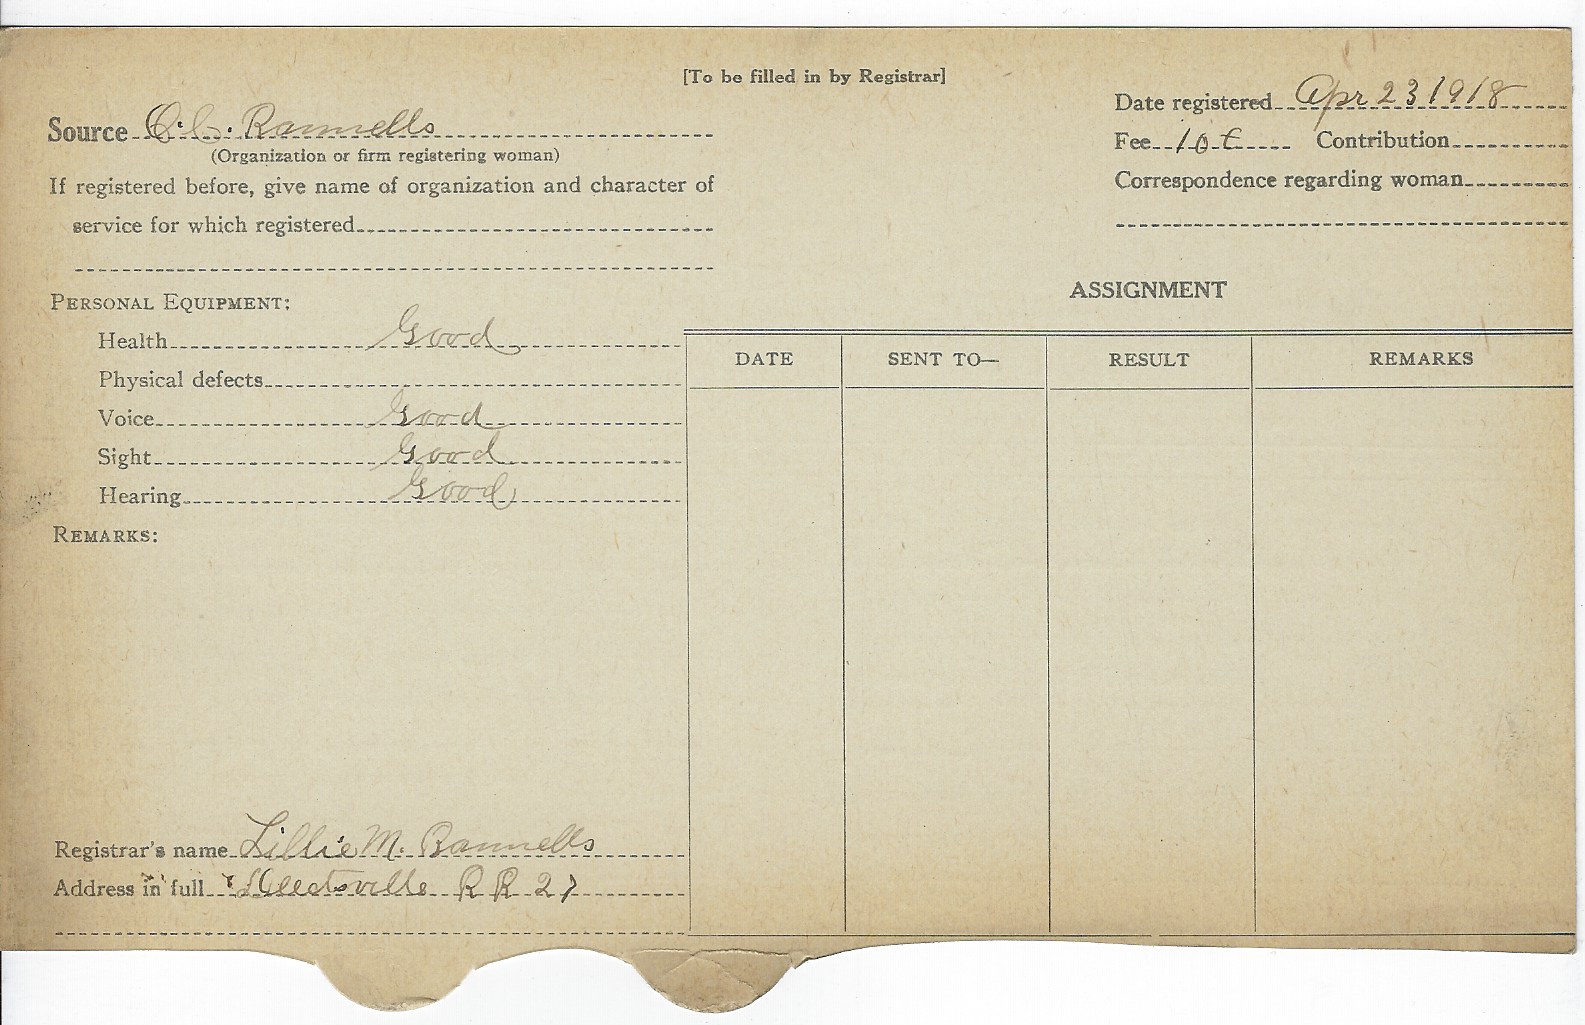 [To be filled in by Registrar]
Source O. C. Rannells
(Organization or firm registering woman)
If registered before, give name of organization and character of
service for which registered
Date registered Apr 23 1918
Fee 10¢ Contribution
Correspondence regarding woman
PERSONAL EQUIPMENT:
Health Good
Physical defects
Voice Good
Sight Good
Hearing Good
REMARKS:
Registrar's name Lillie M. Rannells
Address in full RR 27
ASSIGNMENT
DATE SENT TO— RESULT REMARKS